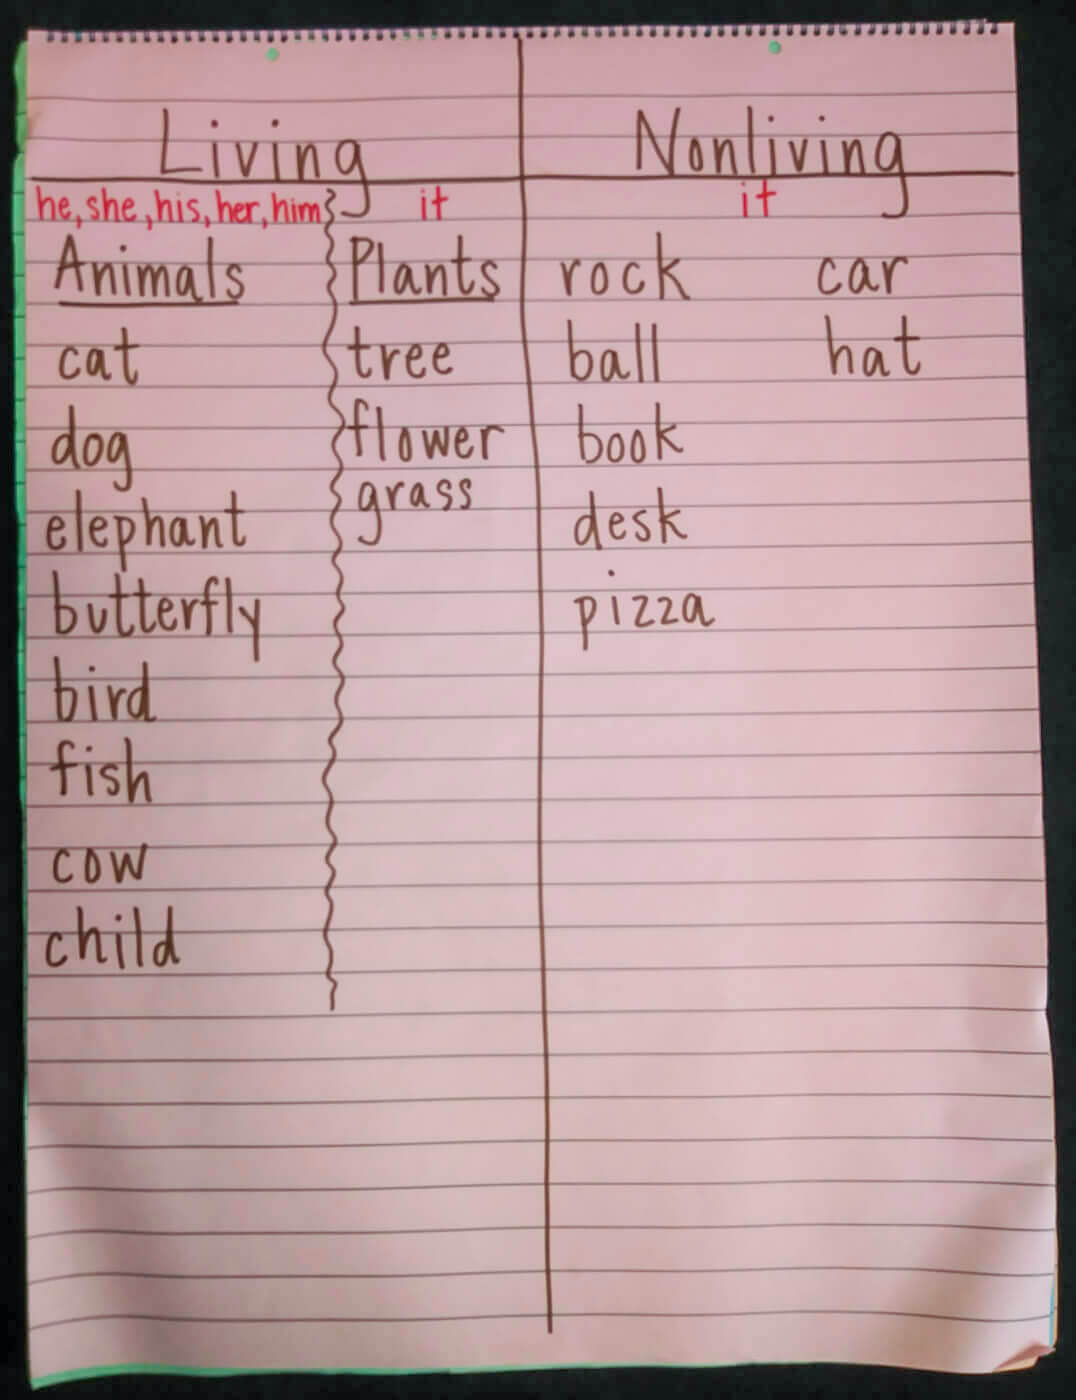 Living
he, she, his, her, him
it
Animals
cat
dog
elephant
butterfly
bird
fish
cow
child
Plants
tree
flower
grass
Nonliving
it
rock
ball
book
desk
pizza
car
hat